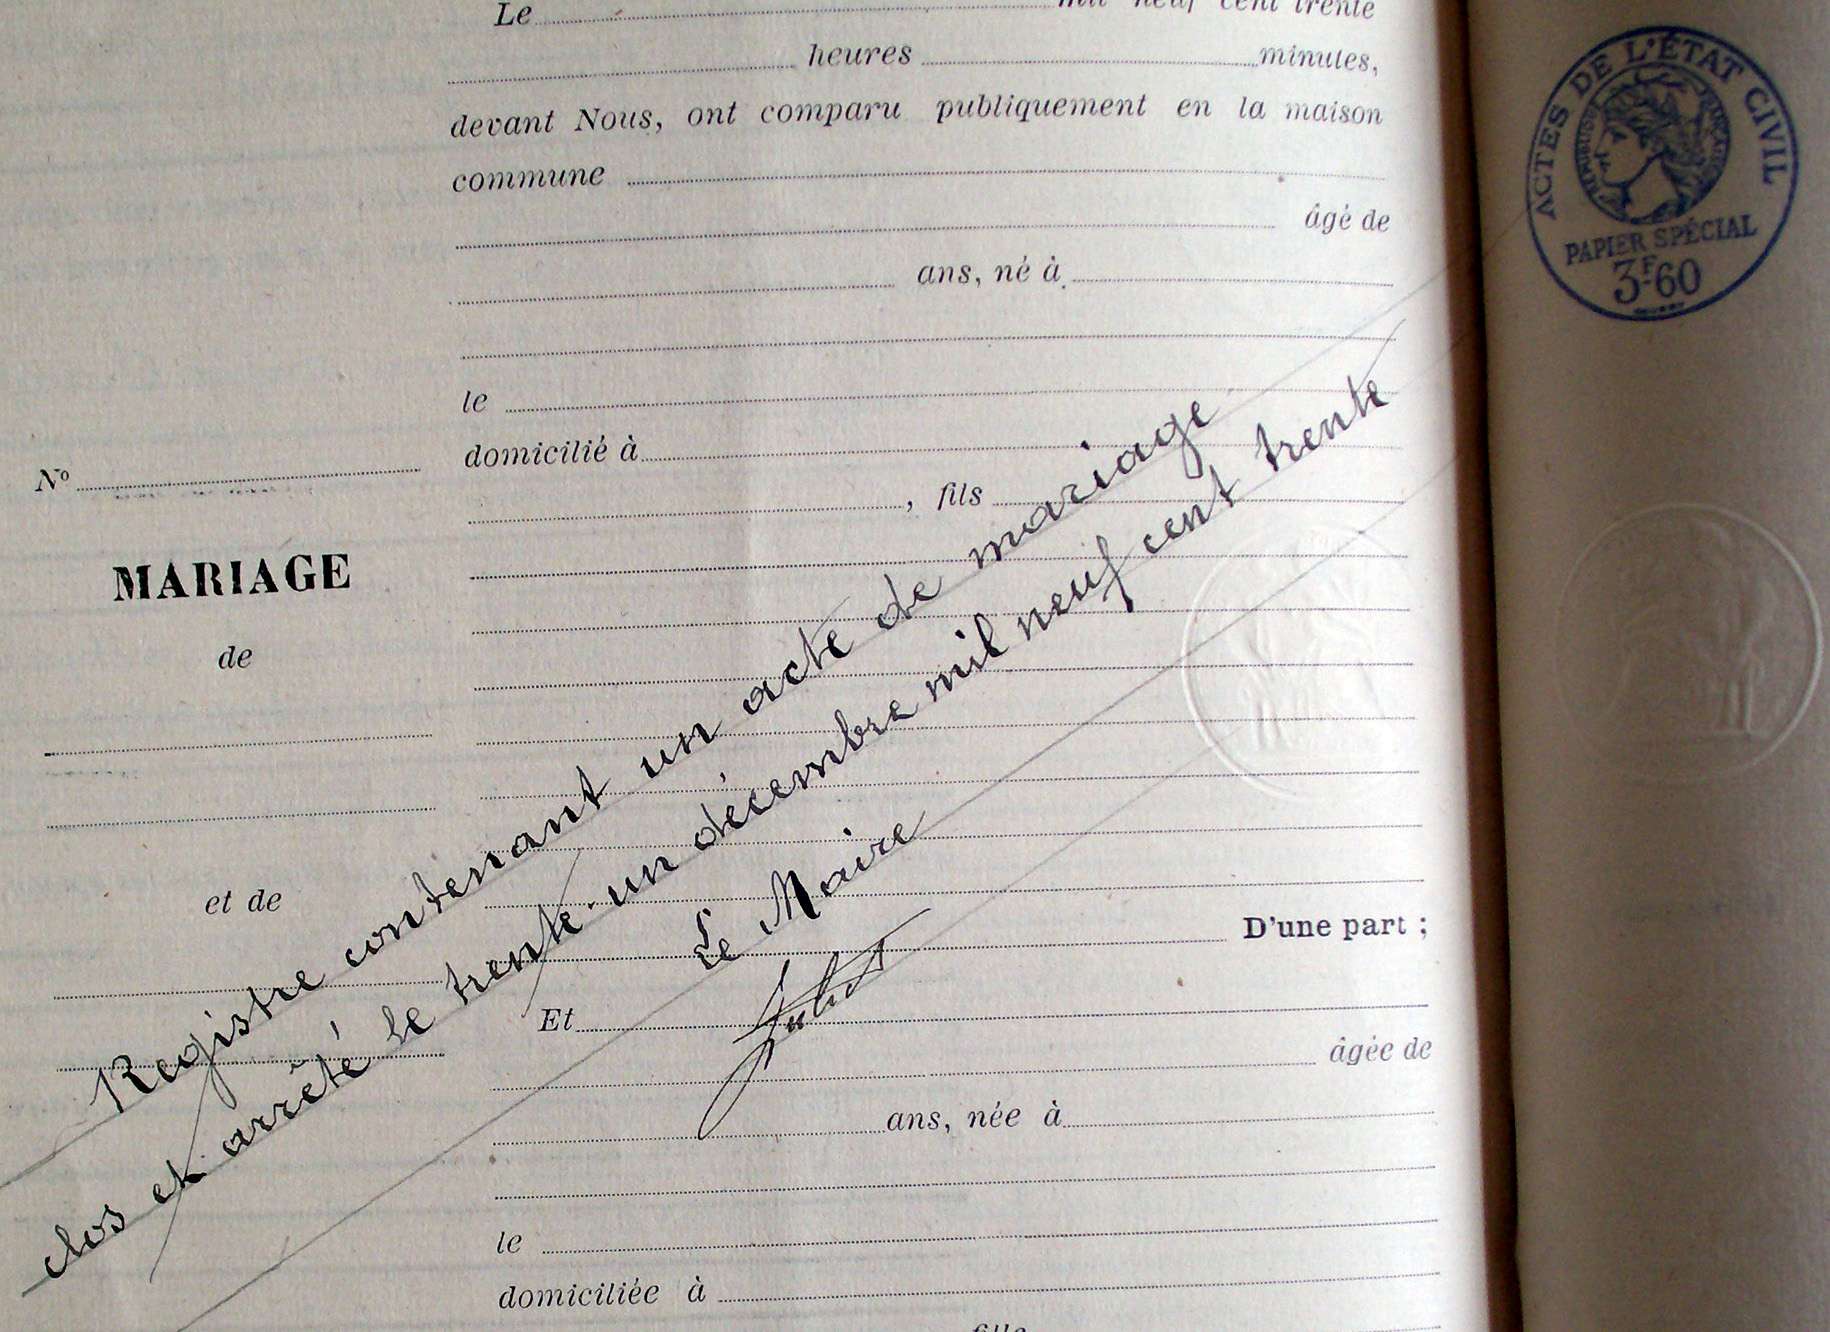 Le mil neuf cent trente
heures minutes,
devant Nous, ont comparu publiquement en la maison
commune
âgé de
ans, né à
le
domicilié à
, fils
D'une part ;
Et
âgée de
ans, née à
le
domiciliée à
fille
Nº
MARIAGE
de
et de
Registre contenant un acte de mariage
clos et arrêté le trente-un décembre mil neuf cent trente
Le Maire
ACTES DE L'ÉTAT CIVIL
RÉPUBLIQUE FRANÇAISE
PAPIER SPÉCIAL
3F.60